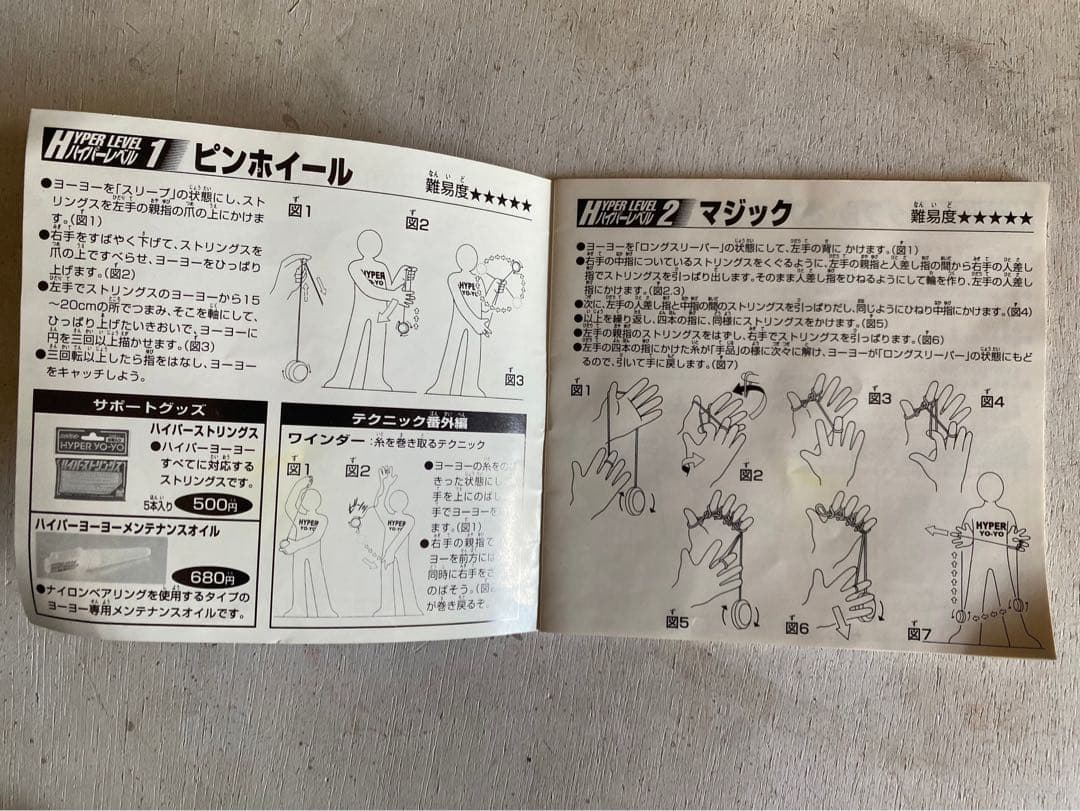 HYPER LEVEL
ハイパーレベル 1 ピンホイール
難易度★★★★★
なんいど
●ヨーヨーを「スリープ」の状態にし、スト
リングスを左手の親指の爪の上にかけま
す。(図1)
●右手をすばやく下げて、ストリングスを
爪の上ですべらせ、ヨーヨーをひっぱり
上げます。(図2)
●左手でストリングスのヨーヨーから15
～20cmの所でつまみ、そこを軸にして、
ひっぱり上げたいきおいで、ヨーヨーに
円を三回以上描かせます。(図3)
●三回転以上したら指をはなし、ヨーヨー
をキャッチしよう。
図1
図2
HYPER
YO-YO
HYPER
図3
サポートグッズ
HYPER YO-YO
ハイパーストリングス
ハイパーストリングス
●ハイパーヨーヨー
すべてに対応する
ストリングスです。
5本入り 500円
ハイパーヨーヨーメンテナンスオイル
680円
●ナイロンベアリングを使用するタイプの
ヨーヨー専用メンテナンスオイルです。
テクニック番外編
ワインダー:糸を巻き取るテクニック
図1
図2
HYPER
YO-YO
HYPER
YO-YO
●ヨーヨーの糸をの
きった状態にし
手を上にのばし
手でヨーヨーを
ます。(図1)
●右手の親指で
ヨーを前方には
同時に右手をさ
のばそう。(図
が巻き戻るぞ。
HYPER LEVEL
ハイパーレベル 2 マジック
難易度★★★★★
なんいど
●ヨーヨーを「ロングスリーパー」の状態にして、左手の背に かけます。(図1)
●右手の中指についているストリングスをくぐるように、左手の親指と人差し指の間から右手の人差し
指でストリングスを引っぱり出します。そのまま人差し指をひねるようにして輪を作り、左手の人差し
指にかけます。(図2.3)
●次に、左手の人差し指と中指の間のストリングスを引っぱりだし、同じようにひねり中指にかけます。(図4)
●以上を繰り返し、四本の指に、同様にストリングスをかけます。(図5)
●左手の親指のストリングスをはずし、右手でストリングスを引っぱります。(図6)
●左手の四本の指にかけた糸が「手品」の様に次々に解け、ヨーヨーが「ロングスリーパー」の状態にもど
るので、引いて手に戻します。(図7)
図1
図2
図3
図4
図5
図6
図7
HYPER
YO-YO